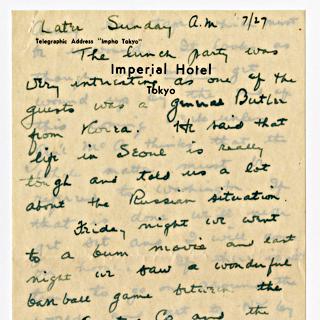 Later Sunday A.M 7/27
Telegraphic Address "Impho Tokyo"
The lunch party was
Imperial Hotel
very intristing as one of the
Tokyo
guests was a general Butler
from Korea. He said that
life in Seoul is really
tough and told us a lot
about the Russian situation.
Friday night we went
to a bum movie and last
night we saw a wonderful
baseball game between the
Co and the